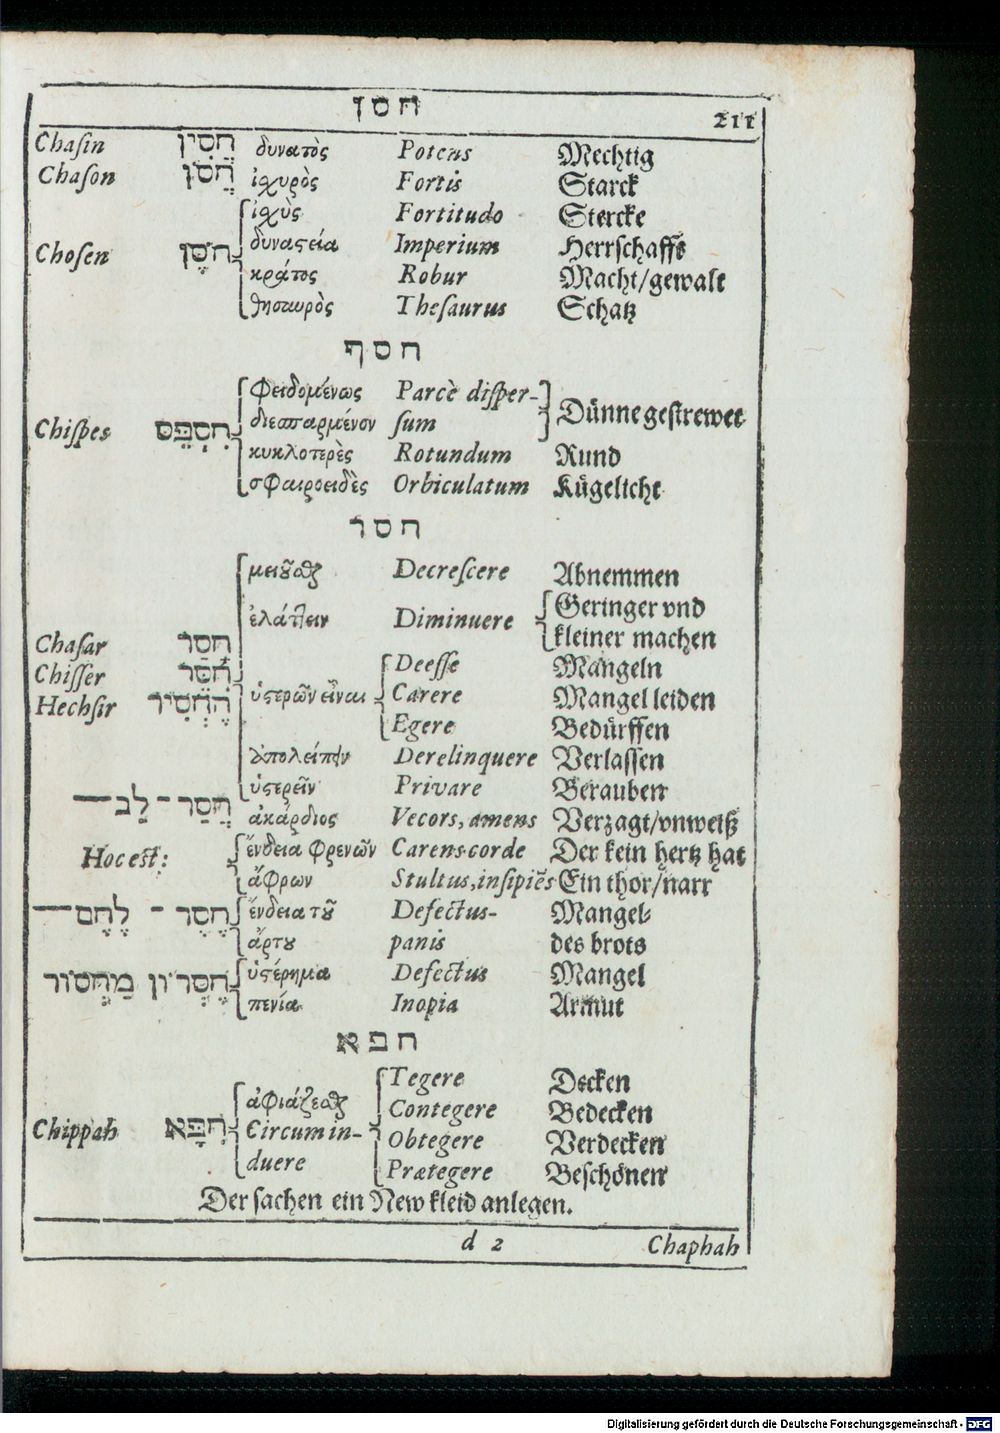 חסן
211
Chaſin חֲסִין δυνατὸς Potens Mechtig
Chaſon חֲסֹן ἰχυρὸς Fortis Starck
ἰχὺς Fortitudo Stercke
δυναςεία Imperium Herrſchafft
Choſen חֹסֶן
κράτος Robur Macht/gewalt
θησαυρὸς Theſaurus Schatz
חסף
φειδομένως Parcè diſper-
διεσπαρμένον ſum Dünne geſtrewet
Chiſpes חִסְפֵּס
κυκλοτερὲς Rotundum Rund
σφαιροειδὲς Orbiculatum Kügelicht
חסר
μειοῦσθαι Decreſcere Abnemmen
ἐλάττειν Diminuere Geringer vnd
kleiner machen
Chaſar חָסַר
Deeſſe Mangeln
Chiſſer חִסֵּר
ὑςερῶν εἶναι Carere Mangel leiden
Hechſir הֶחְסִיר
Egere Bedürffen
ἀπολείπειν Derelinquere Verlaſſen
ὑςερεῖν Privare Berauben
חֲסַר־לֵב—
ἀκάρδιος Vecors, amens Verzagt/vnweiß
Hoc eſt:
ἔνδεια φρενῶν Carens corde Der kein hertz hat
ἄφρων Stultus, inſipiēs Ein thor/narr
חֶסֶר־לֶחֶם—
ἔνδεια τοῦ Defectus- Mangel-
ἄρτου panis des brots
חֶסְרוֹן מַחְסוֹר
ὑςέρημα Defectus Mangel
πενία Inopia Armut
חפא
Tegere Decken
ἀφιάζεσθαι Contegere Bedecken
Chippah חִפָּא
Circumin- Obtegere Verdecken
duere Prætegere Beſchönen
Der ſachen ein New kleid anlegen.
d 2
Chaphah
Digitalisierung gefördert durch die Deutsche Forschungsgemeinschaft - DFG